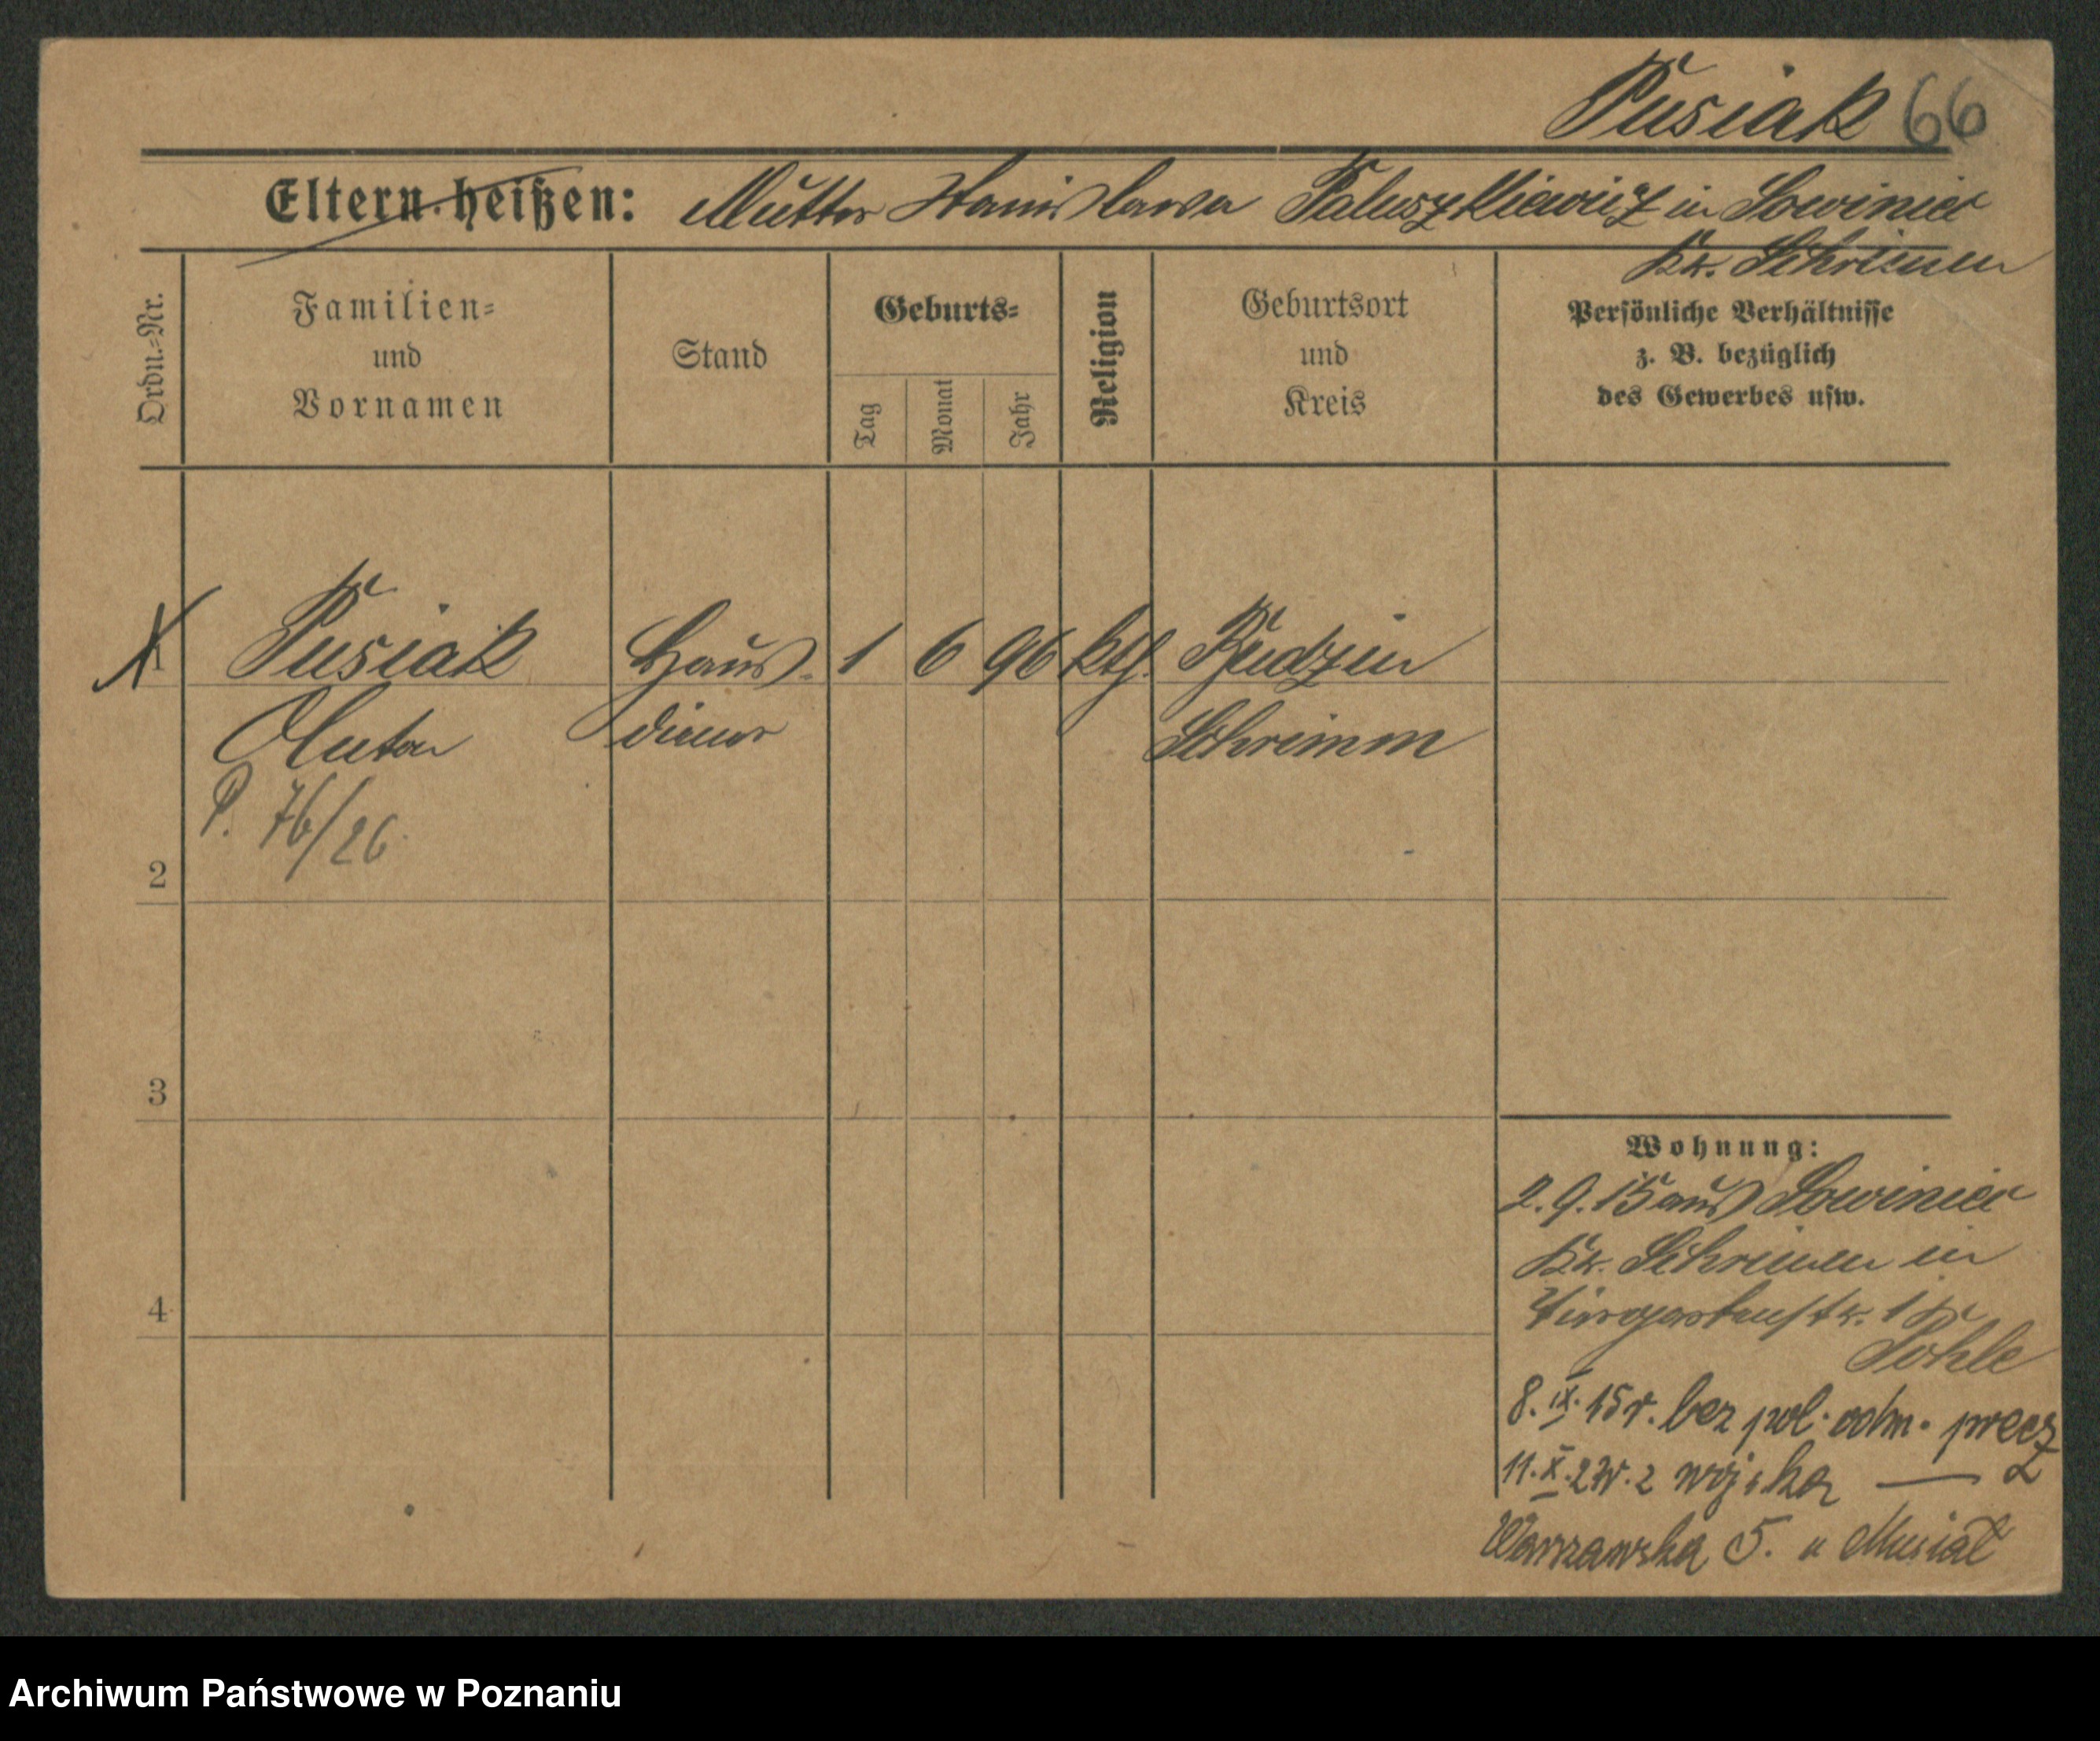 Pusiak 66
Eltern heißen: Mutter Stanislawa Paluszkiewicz in Sowiniec
Kr. Schrimm
Ordn.-Nr.
Familien-
und
Vornamen
Stand
Geburts-
Tag
Monat
Jahr
Religion
Geburtsort
und
Kreis
Persönliche Verhältnisse
z. B. bezüglich
des Gewerbes usw.
1 Pusiak Haus- 1 6 96 kth. Budzin
Anton diener Schrimm
P. 76/26
2
3
4
Wohnung:
2.9.15 aus Sowiniec
Kr. Schrimm in
Tiergartenstr. 1 b
8.IX.15 r. bez pol. odm. precz
11.X.21r. z wojska — 2
Warszawska 5. u Musiał
Archiwum Państwowe w Poznaniu